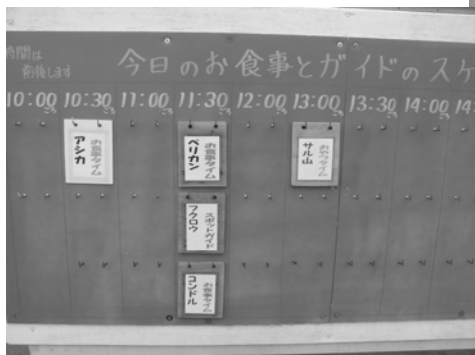 時間は
前後します
今日のお食事とガイドのスケ
10:00ごろ 10:30ごろ 11:00ごろ 11:30ごろ 12:00ごろ 13:00ごろ 13:30ごろ 14:00ごろ 14
お食事タイム
アシカ
お食事タイム
ペリカン
おやつタイム
サル山
スポットガイド
フクロウ
お食事タイム
コンドル